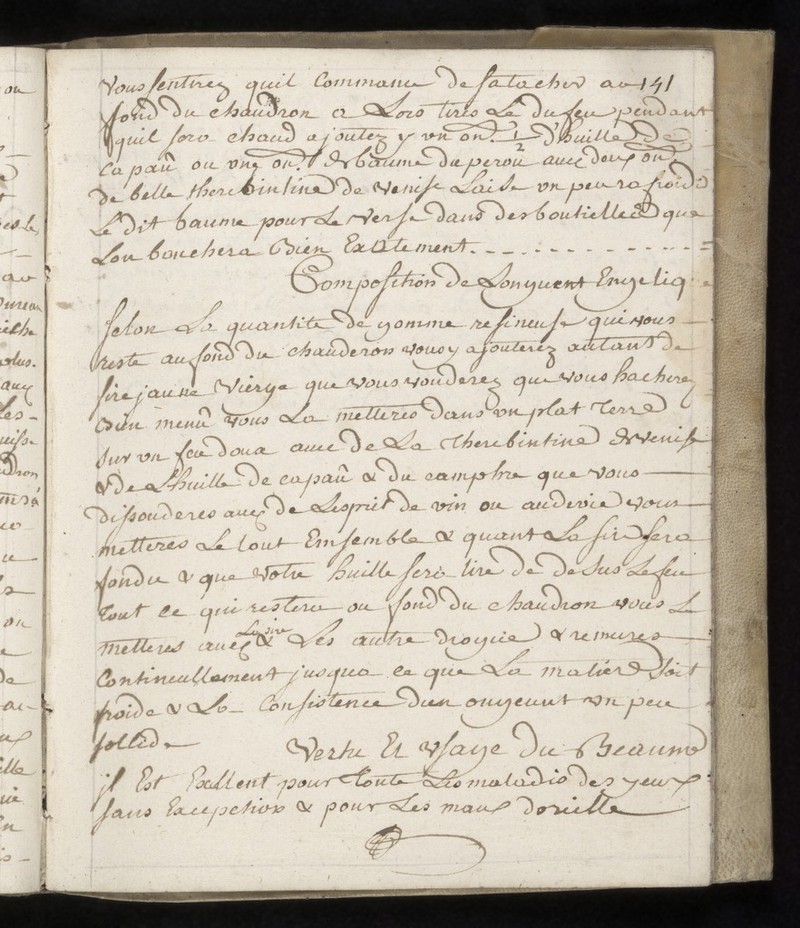 Vous sentirez quil Commance de satacher au 141
fond du chaudron a Lors tires Le du feu pendant
quil sera chaud ajoutez y un on. 1/2 d'huille De
Capaü ou une on. de baume du perou avec deux on
de belle therebintine de Venise Laise un peu rafroidi
Le dit baume pour Le Verse dans des boutielles que
Lon bouchera Bien Exatement
Composition de Longuent Engeliq
selon La quantite de gomme resineuse qui vous
reste au fond du chauderon vous y ajouterez autant de
sire jaune Vierge que vous vouderez que vous hacherez
bien menü vous La metteres dans un plat Terre
sur un feu doux avec de La Therebintine de Venise
& de Lhuille de capaü & du camphre que vous
dissouderes avec de Lesprit de vin ou audevie vous
metteres Le tout Emsemble & quant La sire sera
fondu & que Votre huille sera tire de desus Le feu
tout ce qui restera au fond du chaudron vous Le
metteres avec La sire & Les autre drogue & remures
Continuellement jusqua ce que La matiere soit
froide & La Consistence dun onguent un peu
sollide Vertu Et Usage du Beaume
jl Est Exellent pour toute Les maladis des yeux
sans Excepetion & pour Les maux dorielle